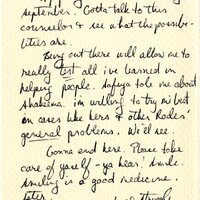 september. Gotta talk to this
counselor & see what the possibi-
lities are.
Being out there will allow me to
really test all i've learned in
helping people. Safiya tole me about
Shakeema. im willing to try mi best
in cases like hers & other "Rades'
general problems. We'll see.
Gonna end here. Please take
care of yaself - ya hear! Smile.
Smiling is a good medicine.
Later
Struggle